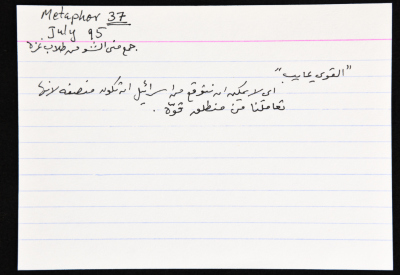 Metaphor 37
July 95
جمع من طلاب غزه.
"القوي عايب"
اي لا يمكن ان نتوقع من اسرائيل ان تكون منصفه لانها
تعاملنا من منطلق قوّة.